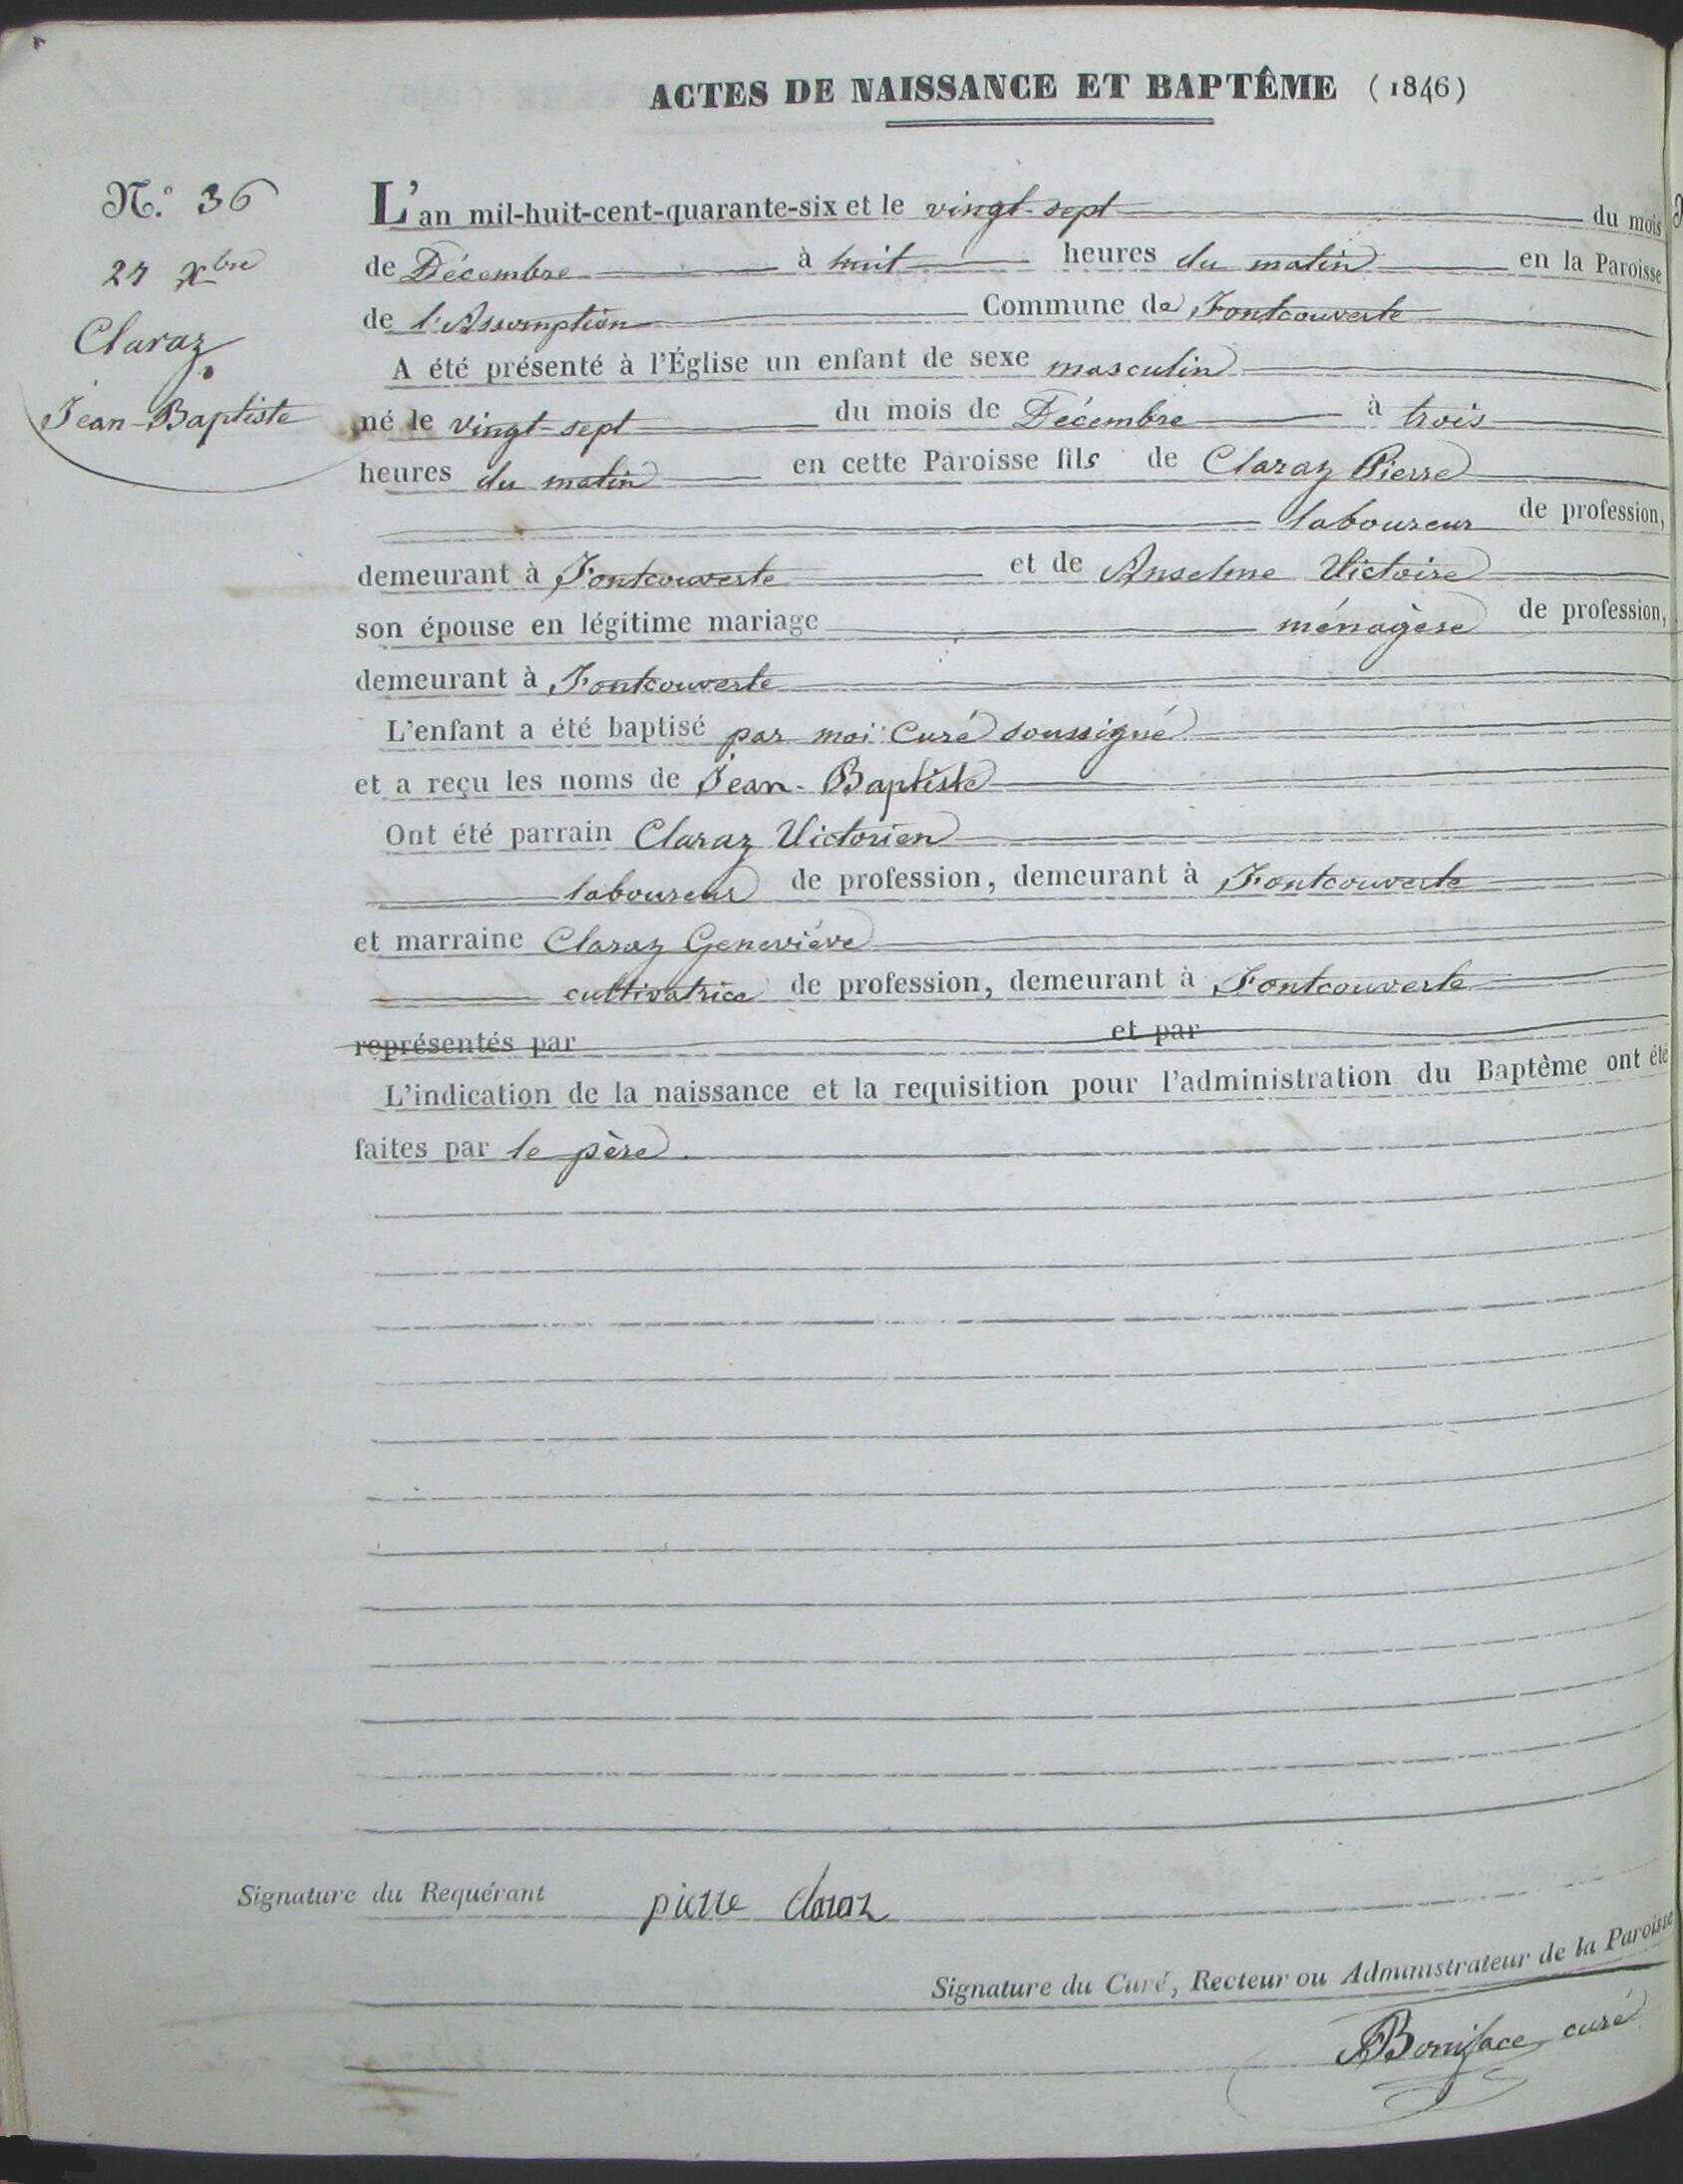 ACTES DE NAISSANCE ET BAPTÊME (1846)
N.° 36
27 Xbre
Claraz
Jean-Baptiste
L'an mil-huit-cent-quarante-six et le vingt-sept du mois
de Décembre à huit heures du matin en la Paroisse
de l'Assomption Commune de Fontcouverte
A été présenté à l'Église un enfant de sexe masculin
né le vingt-sept du mois de Décembre à trois
heures du matin en cette Paroisse fils de Claraz Pierre
laboureur de profession,
demeurant à Fontcouverte et de Anselme Victoire
son épouse en légitime mariage ménagère de profession,
demeurant à Fontcouverte
L'enfant a été baptisé par moi Curé soussigné
et a reçu les noms de Jean-Baptiste
Ont été parrain Claraz Victorien
laboureur de profession, demeurant à Fontcouverte
et marraine Claraz Geneviève
cultivatrice de profession, demeurant à Fontcouverte
représentés par et par
L'indication de la naissance et la requisition pour l'administration du Baptême ont été
faites par le père.
Signature du Requérant pierre claraz
Signature du Curé, Recteur ou Administrateur de la Paroisse
Boniface curé